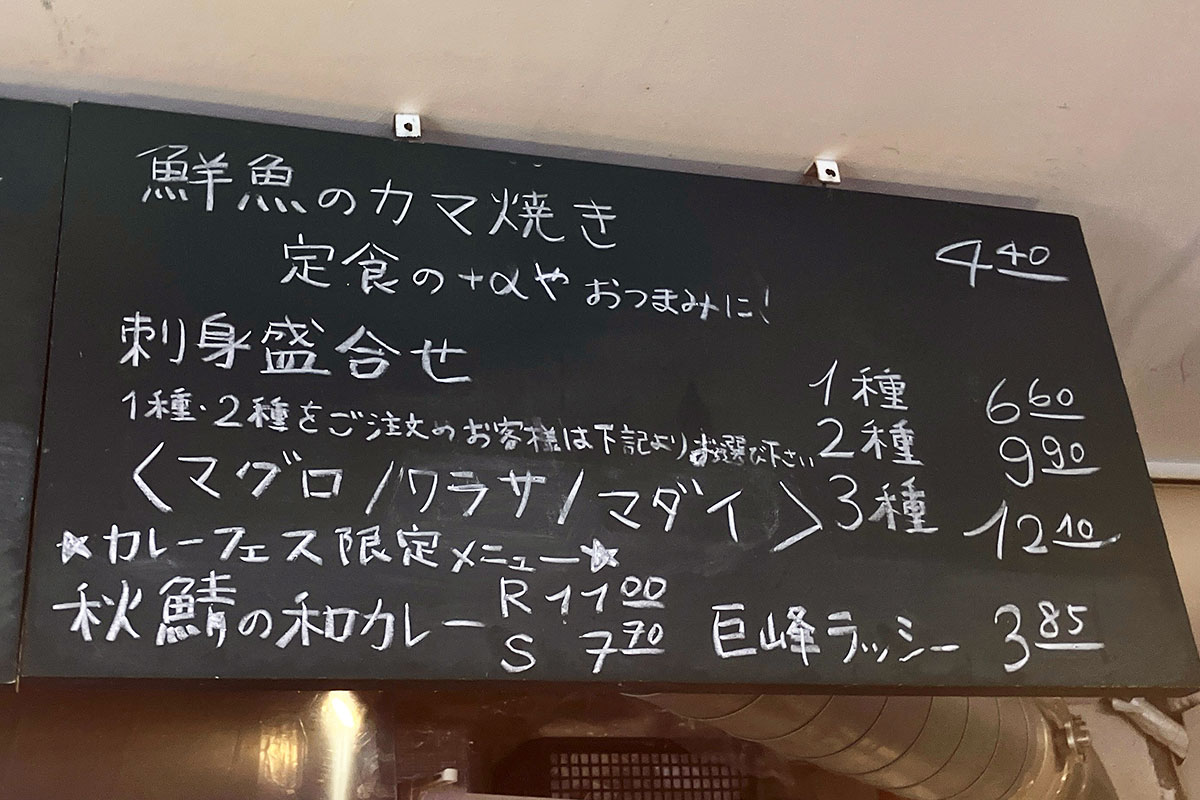 鮮魚のカマ焼き
定食の+αや おつまみに! 440
刺身盛合せ
1種・2種をご注文のお客様は下記よりお選び下さい
1種 660
2種 990
3種 1210
〈マグロ/ワラサ/マダイ〉
★カレーフェス限定メニュー★
秋鯖の和カレー R 1100
S 770
巨峰ラッシー 385